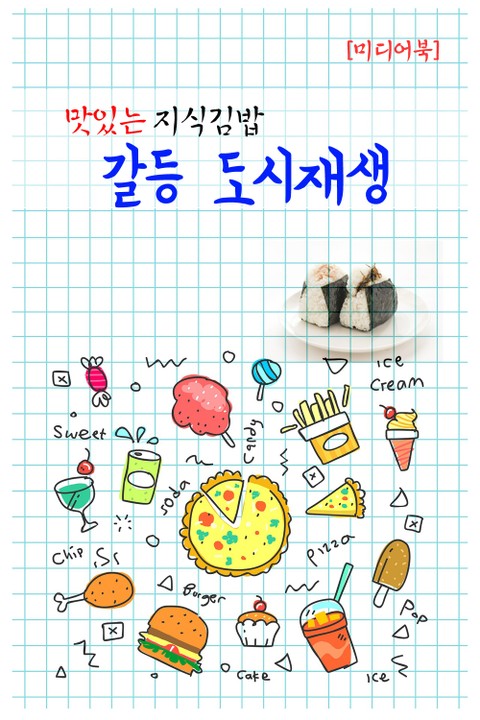 [미디어북]
맛있는 지식김밥
갈등 도시재생
ice
cream
Sweet
candy
soda
pizza
Chip
Burger
Pop
Cake
ice